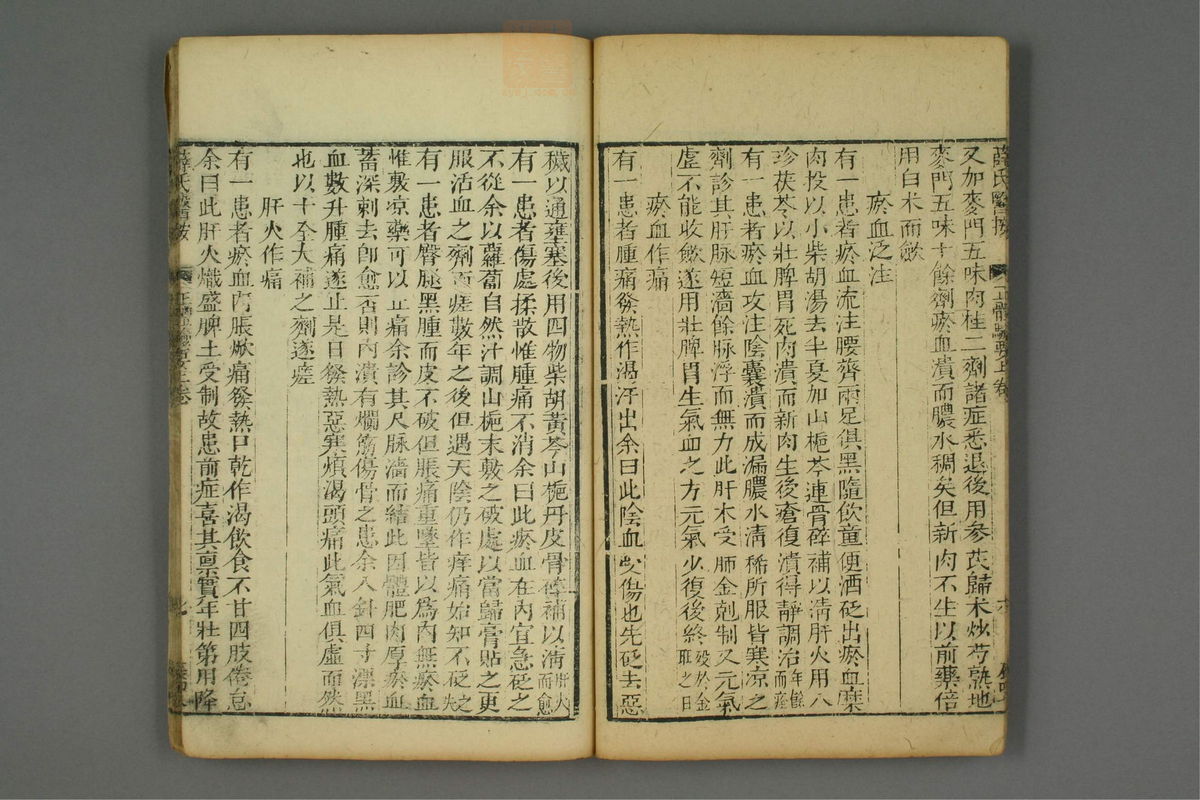 薛氏醫按 正體類要上卷
又加麥門五味肉桂二劑諸症悉退後用參芪歸朮炒芍熟地
麥門五味十餘劑瘀血潰而膿水稠矣但新肉不生以前藥倍
用白朮而歛
瘀血泛注
有一患者瘀血流注腰膂兩足俱黑隨飲童便酒砭出瘀血糜
肉投以小柴胡湯去半夏加山梔芩連骨碎補以清肝火用八
珍茯苓以壯脾胃死肉潰而新肉生後瘡復潰得靜調治年餘而痊
有一患者瘀血攻注陰囊潰而成漏膿水清稀所服皆寒凉之
劑診其肝脉短濇餘脉浮而無力此肝木受肺金剋制又元氣
虛不能收歛遂用壯脾胃生氣血之方元氣少復後終歿於金旺之日
瘀血作痛
有一患者腫痛發熱作渴汗出余曰此陰血受傷也先砭去惡
穢以通壅塞後用四物柴胡黃芩山梔丹皮骨碎補以清肝火而愈
有一患者傷處揉散惟腫痛不消余曰此瘀血在內宜急砭之
不從余以蘿蔔自然汁調山梔末敷之破處以當歸膏貼之更
服活血之劑而瘥數年之後但遇天陰仍作痒痛始知不砭之失
有一患者臀腿黑腫而皮不破但脹痛重墜皆以爲內無瘀血
惟敷凉藥可以止痛余診其尺脉濇而結此因體肥肉厚瘀血
蓄深刺去卽愈否則內潰有爛筋傷骨之患余入針四寸漂黑
血數升腫痛遂止是日發熱惡寒煩渴頭痛此氣血俱虛而然
也以十全大補之劑遂瘥
肝火作痛
有一患者瘀血內脹焮痛發熱口乾作渴飲食不甘四肢倦怠
余曰此肝火熾盛脾土受制故患前症喜其禀實年壯第用降
薛氏醫按 正體類要上卷